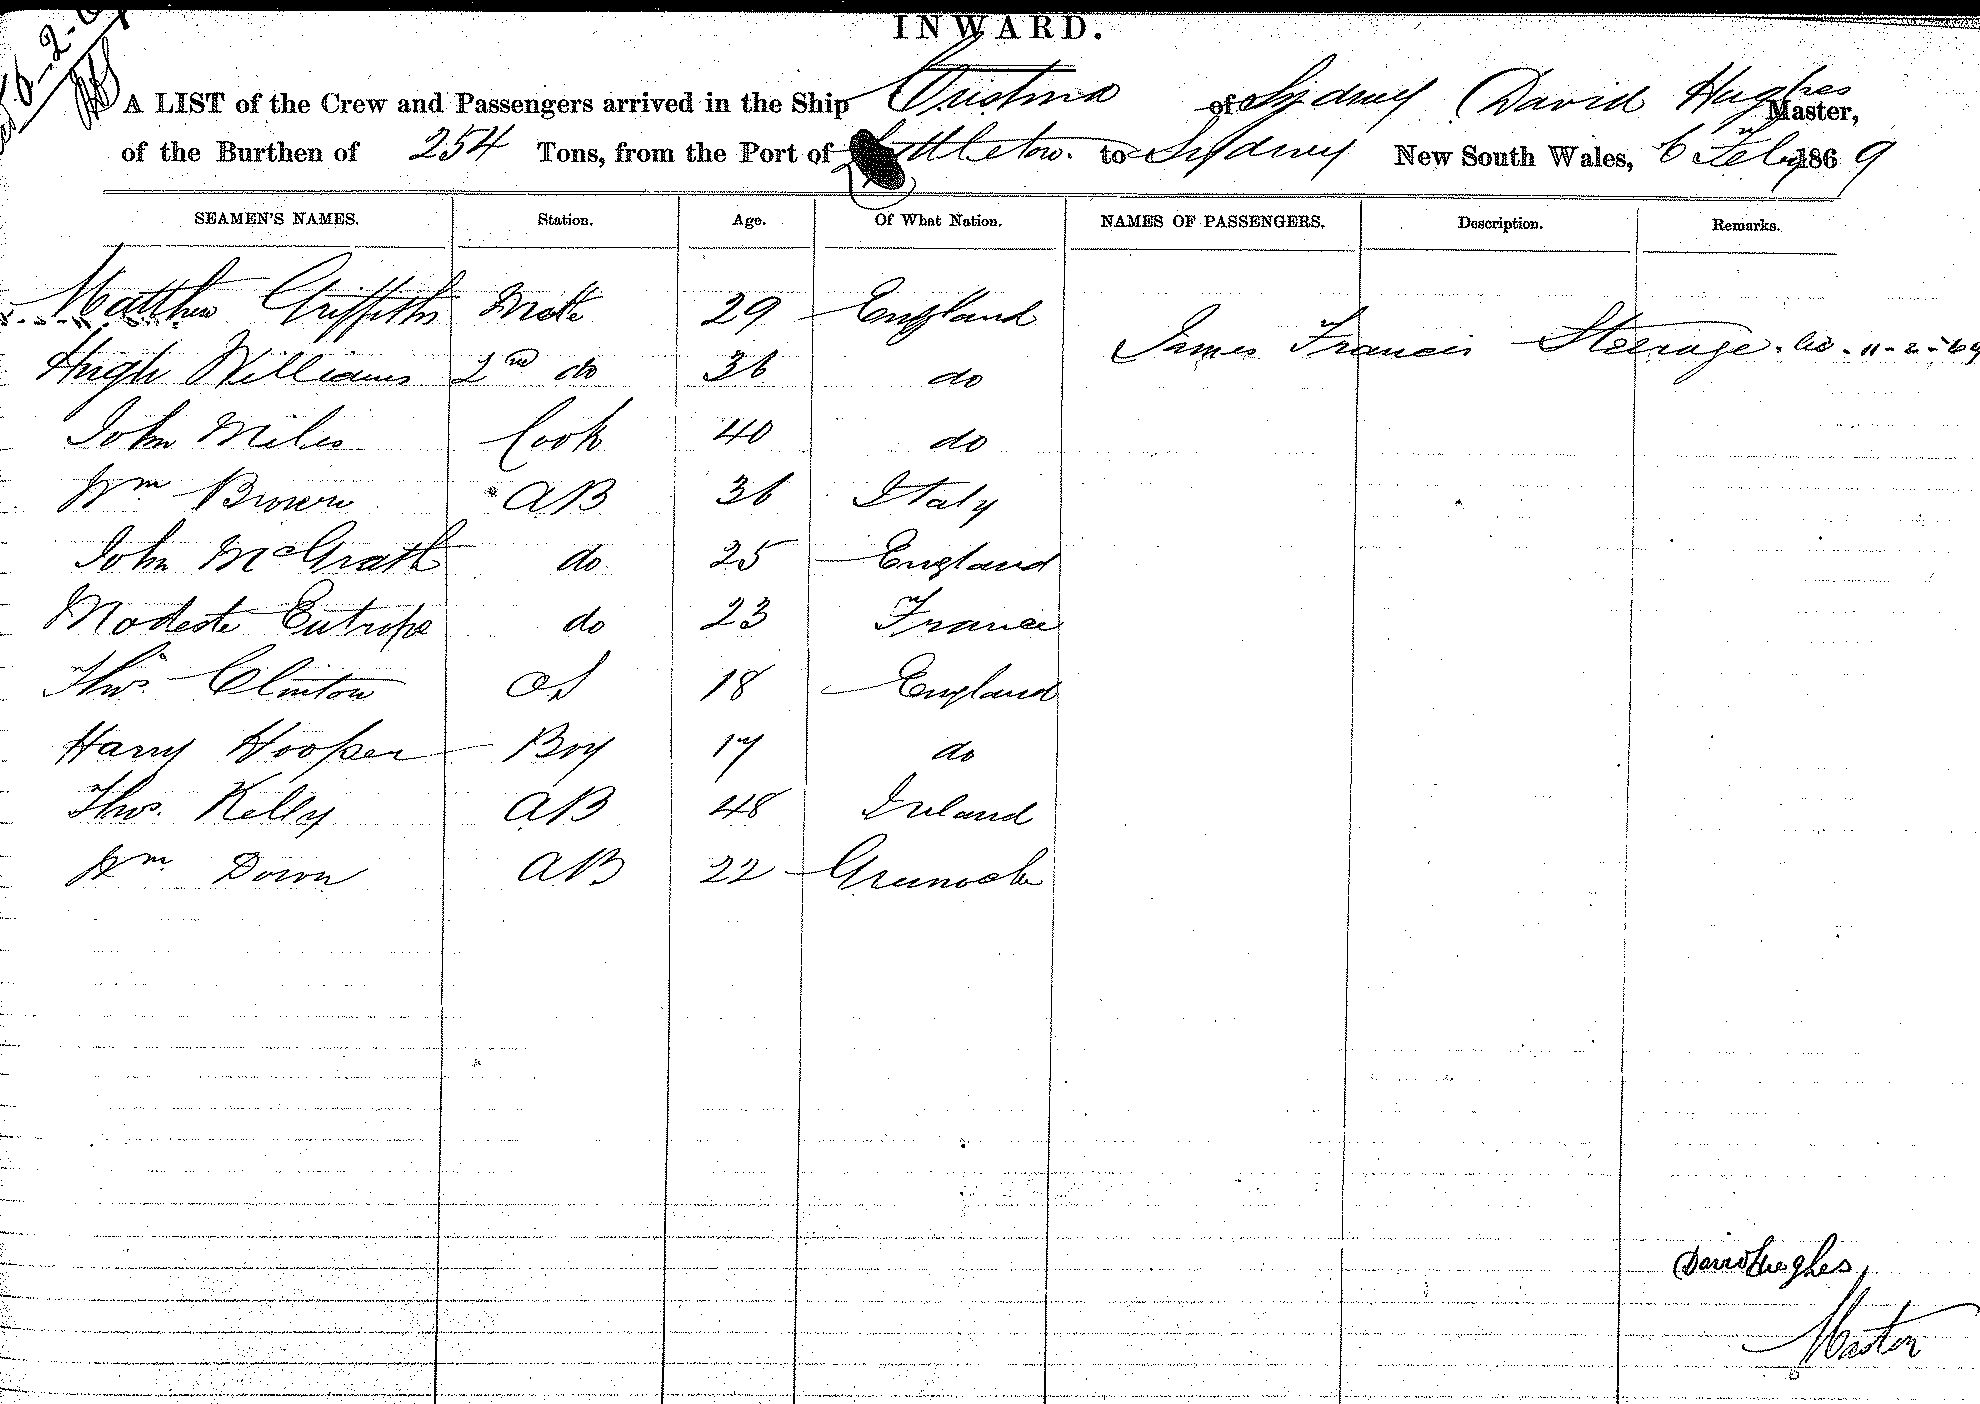 INWARD.
A LIST of the Crew and Passengers arrived in the Ship Cristina of Sydney David Hughes Master,
of the Burthen of 254 Tons, from the Port of Lyttleton. to Sydney New South Wales, 6 Feby 1869
SEAMEN'S NAMES. Station. Age. Of What Nation. NAMES OF PASSENGERS. Description. Remarks.
Matthew Griffiths Mate 29 England
James Francis Steerage. 11-2-69
Hugh Williams 2nd do 36 do
John Miles Cook 40 do
Wm Brown AB 36 Italy
John McGrath do 25 England
Modeste Eutrope do 23 France
Thos. Clinton OS 18 England
Harry Hooper Boy 17 do
Thos. Kelly AB 48 Ireland
Wm. Down AB 22 Greenock
David Hughes,
Master